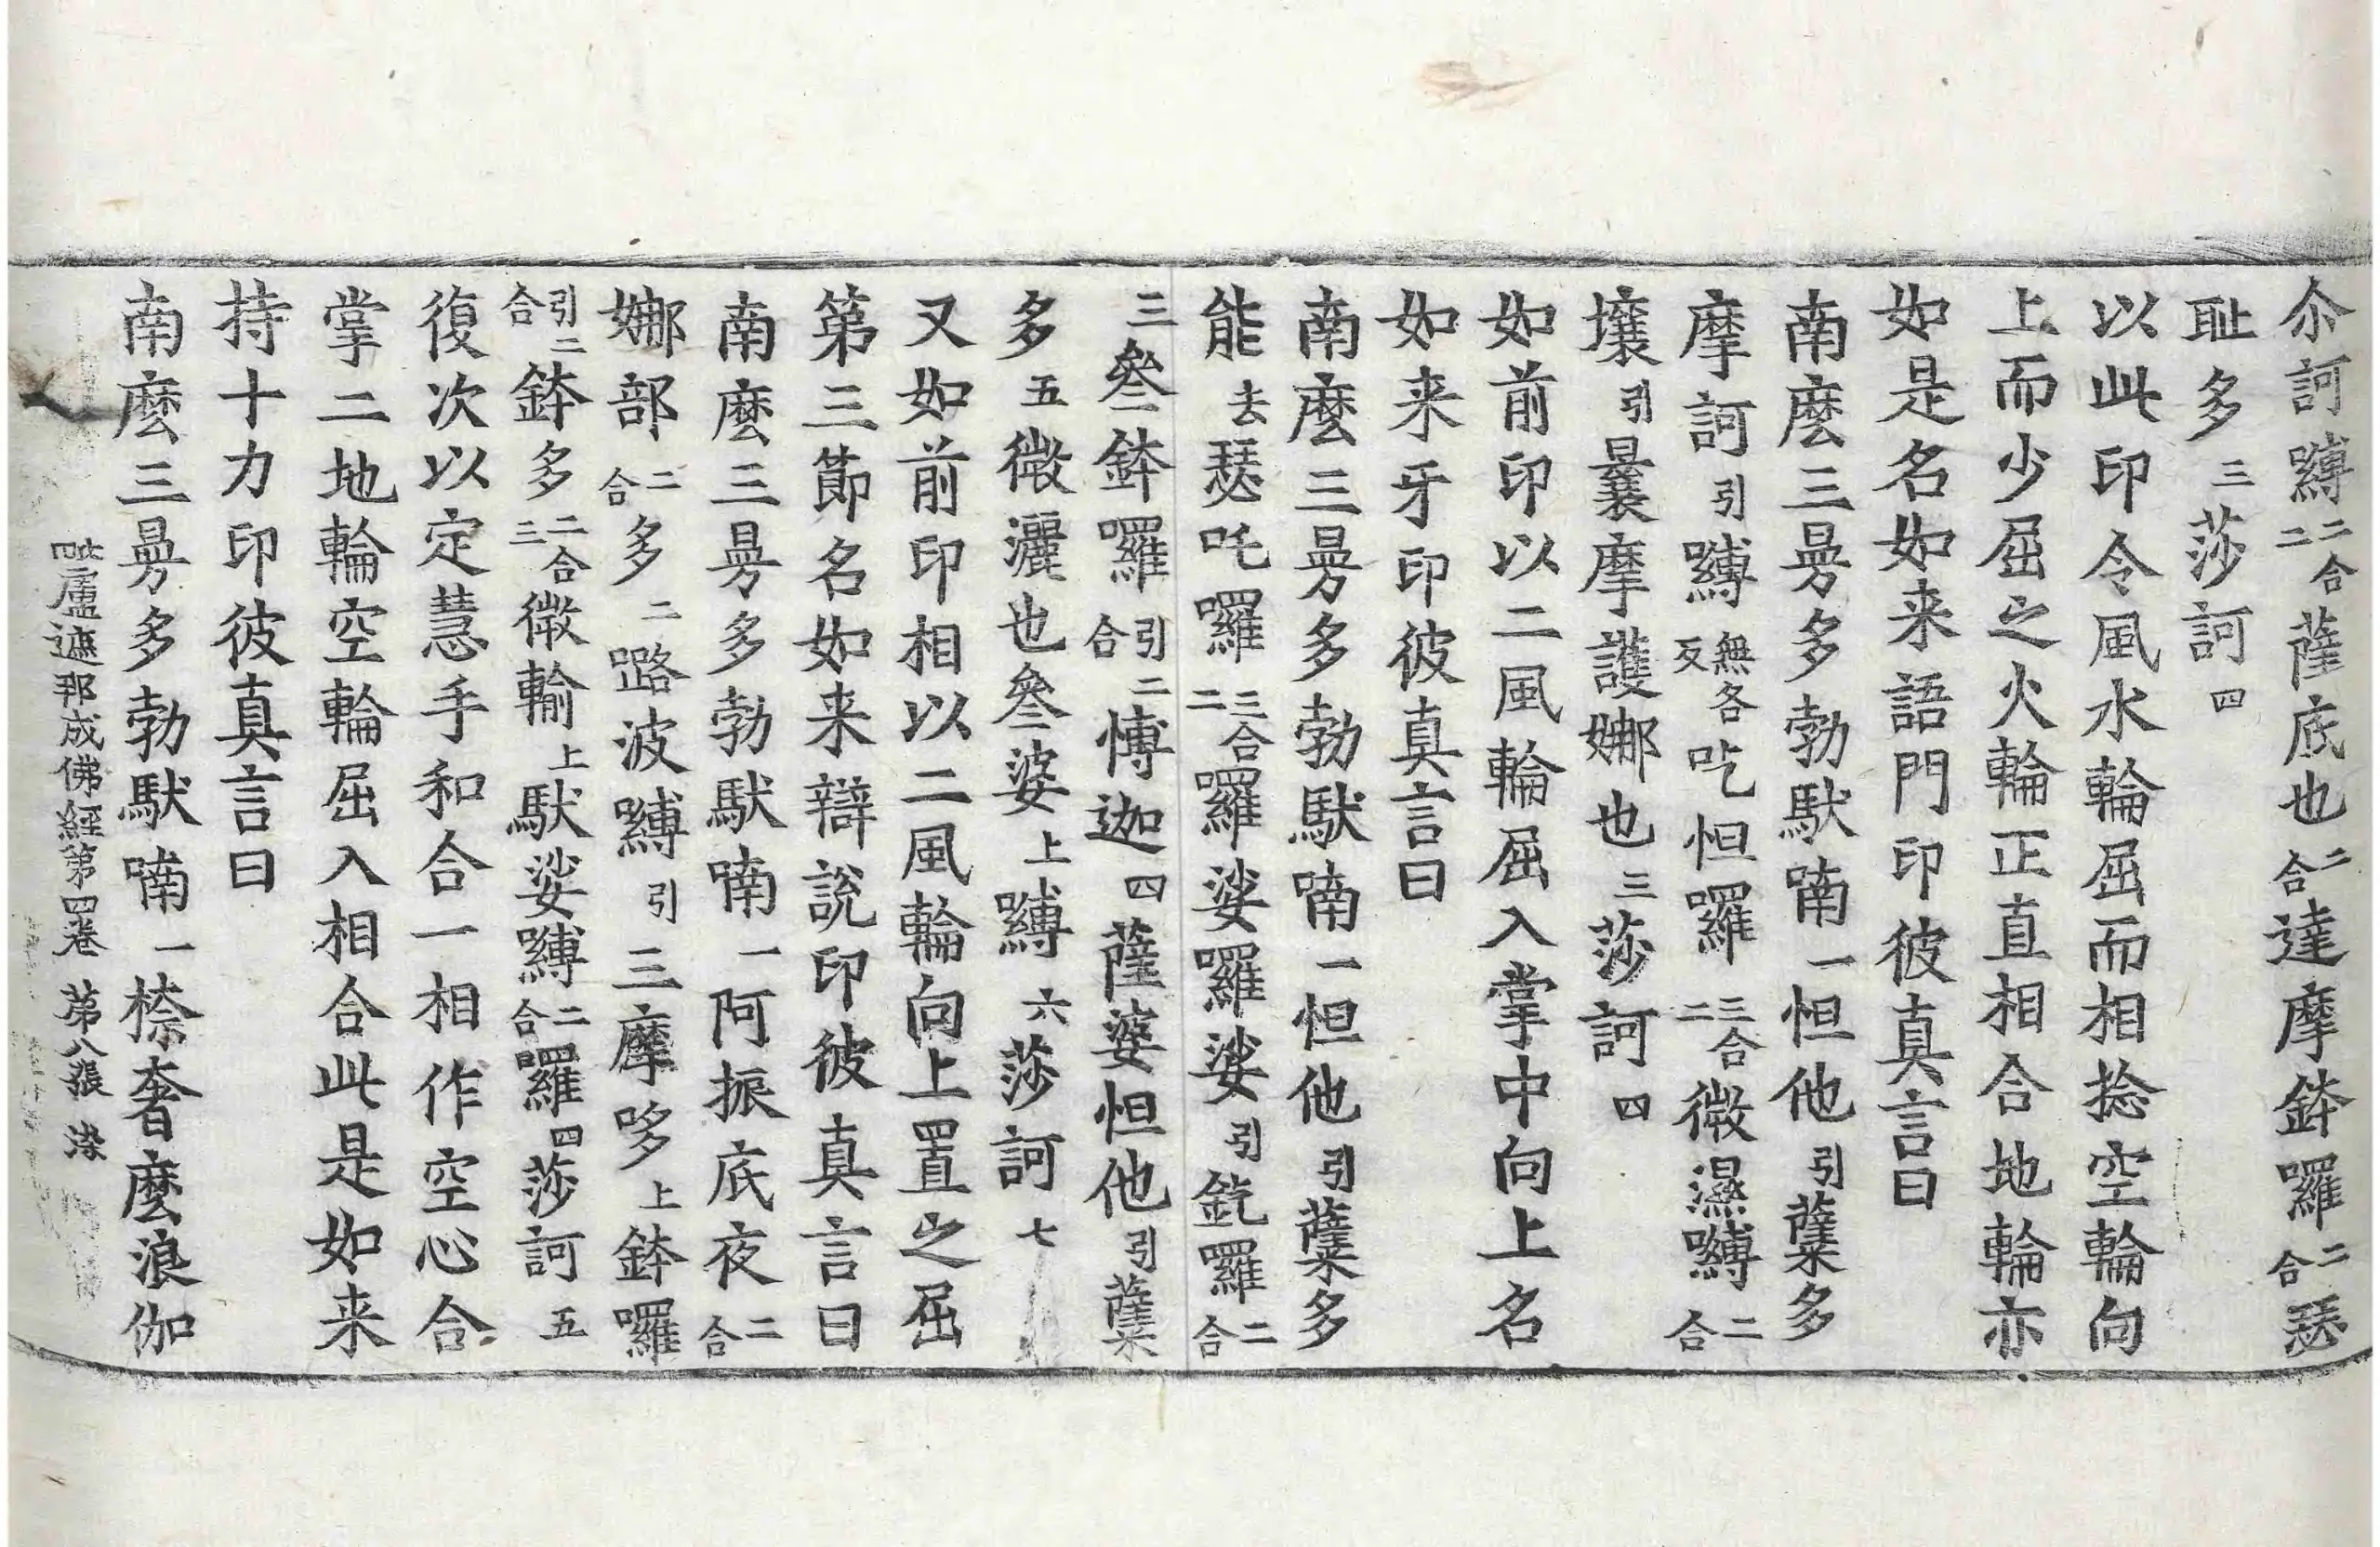 尒訶嚩二合二薩底也二合達摩鉢囉二合瑟
耻多三莎訶四
以此印令風水輪屈而相捻空輪向
上而少屈之火輪正直相合地輪亦
如是名如来語門印彼真言曰
南麼三曼多勃馱喃一怛他引蘖多
摩訶引嚩無各反吃怛囉三合二微濕嚩二合
壤引曩摩護娜也三莎訶四
如前印以二風輪屈入掌中向上名
如来牙印彼真言曰
南麼三曼多勃馱喃一怛他引蘖多
能去瑟吒囉三合二囉娑囉娑引釳囉二合
三參鉢囉引二合博迦四薩婆怛他引蘖
多五微灑也參婆上嚩六莎訶七
又如前印相以二風輪向上置之屈
第三節名如来辯說印彼真言曰
南麼三曼多勃馱喃一阿振底夜二合
娜部二合多二路波嚩引三摩哆上鉢囉
引二合鉢多二合三微輸上馱娑嚩二合囉四莎訶五
復次以定慧手和合一相作空心合
掌二地輪空輪屈入相合此是如来
持十力印彼真言曰
南麼三曼多勃馱喃一㮈奢麼浪伽
毗盧遮那成佛經第四卷 第八張 染